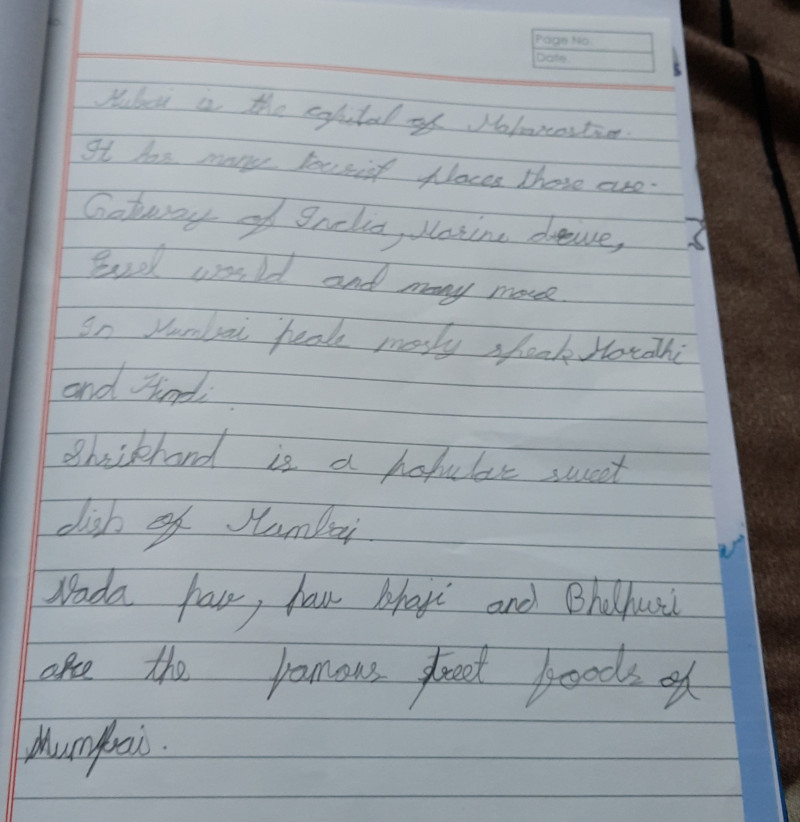 Page No.
Date
is the capital of Maharastra.
It has many tourist places those are.
Gateway of India, Marine drive,
Essel world and many more.
In Mumbai peale mosly speak Marathi
and Hindi.
Shrikhand is a popular sweet
dish of Mumbai.
Vada pav, pav bhaji and Bhelpuri
are the famous street foods of
Mumbai.